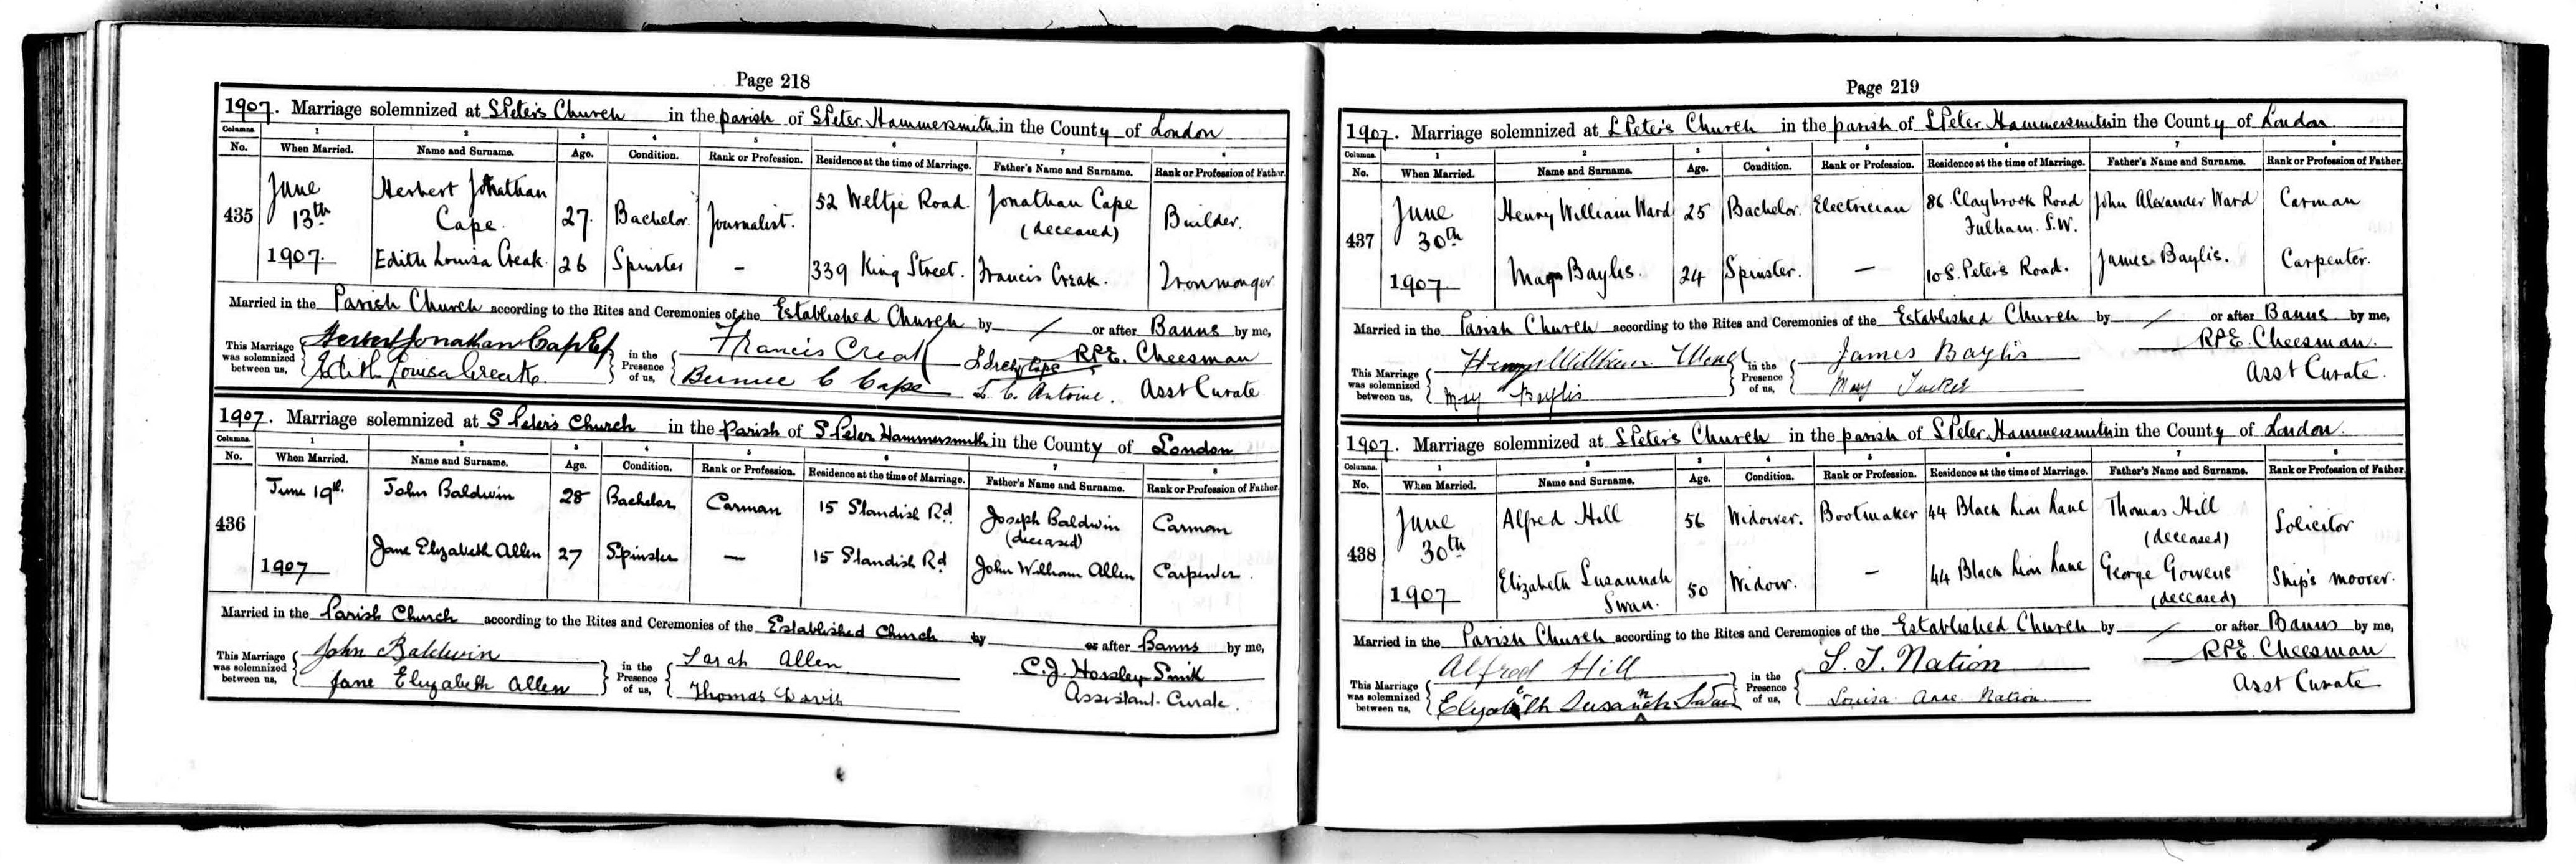 Page 218
1907. Marriage solemnized at S Peter's Church in the parish of S Peter Hammersmith in the County of London
Columns. 1 2 3 4 5 6 7 8
No. When Married. Name and Surname. Age. Condition. Rank or Profession. Residence at the time of Marriage. Father's Name and Surname. Rank or Profession of Father.
435 June 13th 1907. Herbert Jonathan Cape. 27. Bachelor. Journalist. 52 Weltje Road. Jonathan Cape (deceased) Builder.
Edith Louisa Creak. 26 Spinster — 339 King Street. Francis Creak. Ironmonger
Married in the Parish Church according to the Rites and Ceremonies of the Established Church by / or after Banns by me,
This Marriage was solemnized between us, Herbert Jonathan Cape Edith Louisa Creak in the Presence of us, Francis Creak Bernice C Cape L. C. Antoine. R.P.E. Cheesman Asst Curate
1907. Marriage solemnized at S Peter's Church in the Parish of S Peter Hammersmith in the County of London
Columns. 1 2 3 4 5 6 7 8
No. When Married. Name and Surname. Age. Condition. Rank or Profession. Residence at the time of Marriage. Father's Name and Surname. Rank or Profession of Father.
436 June 19th. 1907 John Baldwin 28 Bachelor Carman 15 Standish Rd Joseph Baldwin (deceased) Carman
Jane Elizabeth Allen 27 Spinster — 15 Standish Rd John William Allen Carpenter.
Married in the Parish Church according to the Rites and Ceremonies of the Established Church by or after Banns by me,
This Marriage was solemnized between us, John Baldwin Jane Elizabeth Allen in the Presence of us, Sarah Allen Thomas Davis C.J. Horsley Smith Assistant Curate.
Page 219
1907. Marriage solemnized at S Peter's Church in the parish of S Peter Hammersmith in the County of London.
Columns. 1 2 3 4 5 6 7 8
No. When Married. Name and Surname. Age. Condition. Rank or Profession. Residence at the time of Marriage. Father's Name and Surname. Rank or Profession of Father.
437 June 30th 1907 Henry William Ward 25 Bachelor. Electrician 86 Claybrook Road Fulham. S.W. John Alexander Ward Carman
May Baylis. 24 Spinster. — 10 S. Peters Road. James Baylis. Carpenter.
Married in the Parish Church according to the Rites and Ceremonies of the Established Church by / or after Banns by me,
This Marriage was solemnized between us, Henry William Ward May Baylis in the Presence of us, James Baylis May Tucker R.P.E. Cheesman. Asst Curate.
1907. Marriage solemnized at S Peter's Church in the parish of S Peter Hammersmith in the County of London.
Columns. 1 2 3 4 5 6 7 8
No. When Married. Name and Surname. Age. Condition. Rank or Profession. Residence at the time of Marriage. Father's Name and Surname. Rank or Profession of Father.
438 June 30th 1907 Alfred Hill 56 Widower. Bootmaker 44 Black Lion Lane Thomas Hill (deceased) Solicitor
Elizabeth Susannah Swan. 50 Widow. — 44 Black Lion Lane George Gowens (deceased) Ship's moorer.
Married in the Parish Church according to the Rites and Ceremonies of the Established Church by / or after Banns by me,
This Marriage was solemnized between us, Alfred Hill Elizabeth Susannah Swan in the Presence of us, S. J. Nation Louisa Anne Nation R.P.E. Cheesman Asst Curate